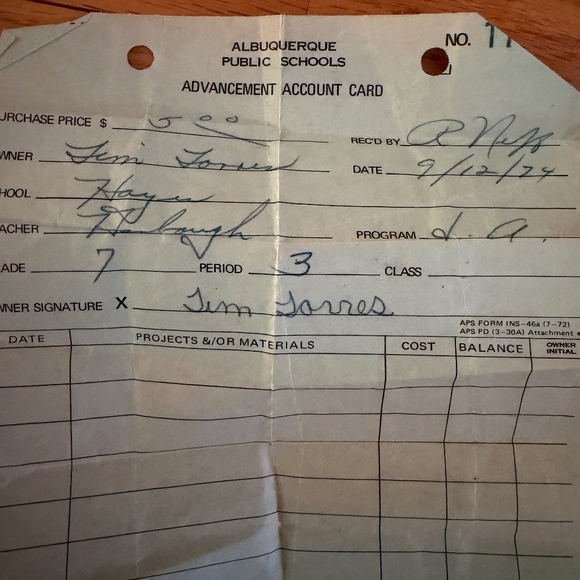 ALBUQUERQUE
PUBLIC SCHOOLS
NO. 11
ADVANCEMENT ACCOUNT CARD
URCHASE PRICE $ 5 00
REC'D BY R Neff
WNER Tim Torres
DATE 9/12/74
HOOL Hayes
ACHER
PROGRAM I. A.
ADE 7 PERIOD 3 CLASS
WNER SIGNATURE X Tim Torres
APS FORM INS-46a (7-72)
APS PD (3-30A) Attachment
DATE PROJECTS &/OR MATERIALS COST BALANCE OWNER INITIAL